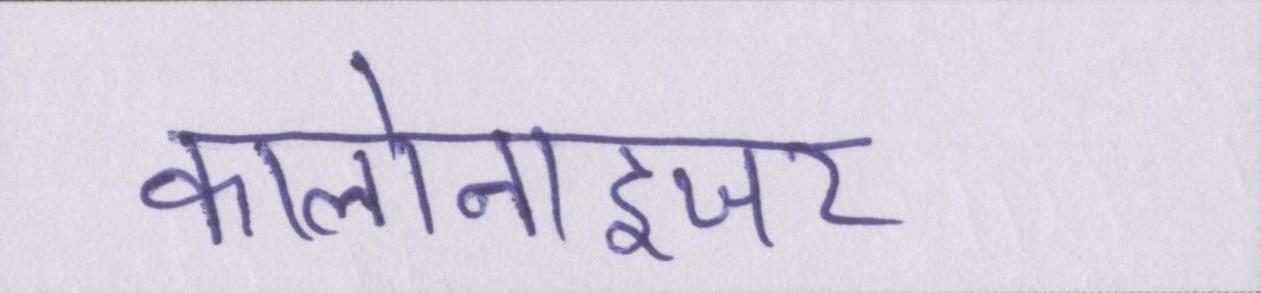 कालोनाइजर